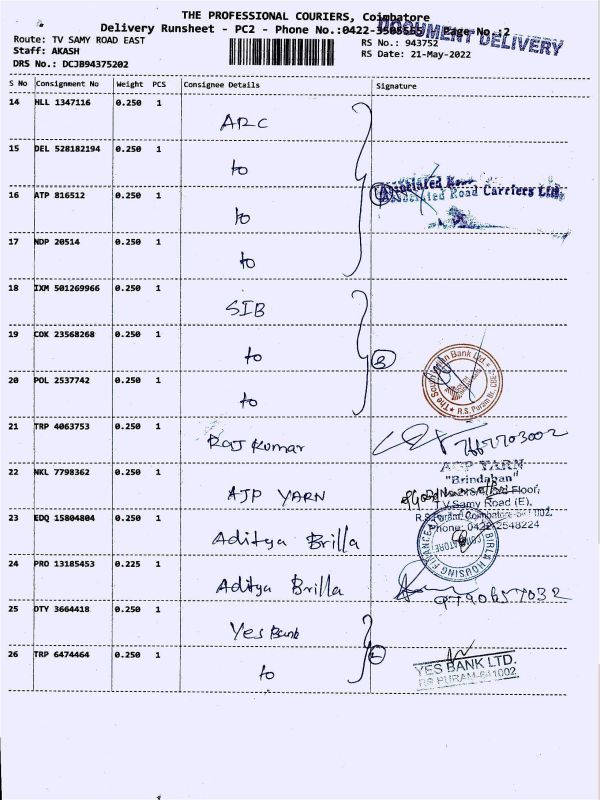 THE PROFESSIONAL COURIERS, Coimbatore
Delivery Runsheet - PC2 - Phone No.:0422- Page No.:2
DOCUMENT DELIVERY
Route: TV SAMY ROAD EAST
RS No.: 943752
Staff: AKASH
RS Date: 21-May-2022
DRS No.: DCJB94375202
S No Consignment No Weight PCS Consignee Details Signature
14 HLL 1347116 0.250 1
ARC
15 DEL 528182194 0.250 1
to
Associated Road Carriers Ltd.
16 ATP 816512 0.250 1
to
17 NDP 20514 0.250 1
to
18 IXM 501269966 0.250 1
SIB
19 COK 23568268 0.250 1
to
3
The South Indian Bank Ltd.
R.S. Puram Br.
20 POL 2537742 0.250 1
to
21 TRP 4063753 0.250 1
Raj Kumar
22 NKL 7798362 0.250 1
AJP YARN
AGP YARN
"Brindaban"
Floor,
T.V.Samy Road (E),
R.S.Puram, Coimbatore-641 002.
Phone: 0422-2548224
23 EDQ 15804804 0.250 1
Aditya Brilla
BIRLA HOUSING FINANCE
COIMBATORE
24 PRO 13185453 0.225 1
Aditya Brilla
9790657032
25 DTY 3664418 0.250 1
Yes Bank
26 TRP 6474464 0.250 1
to
YES BANK LTD.
RS PURAM-641002